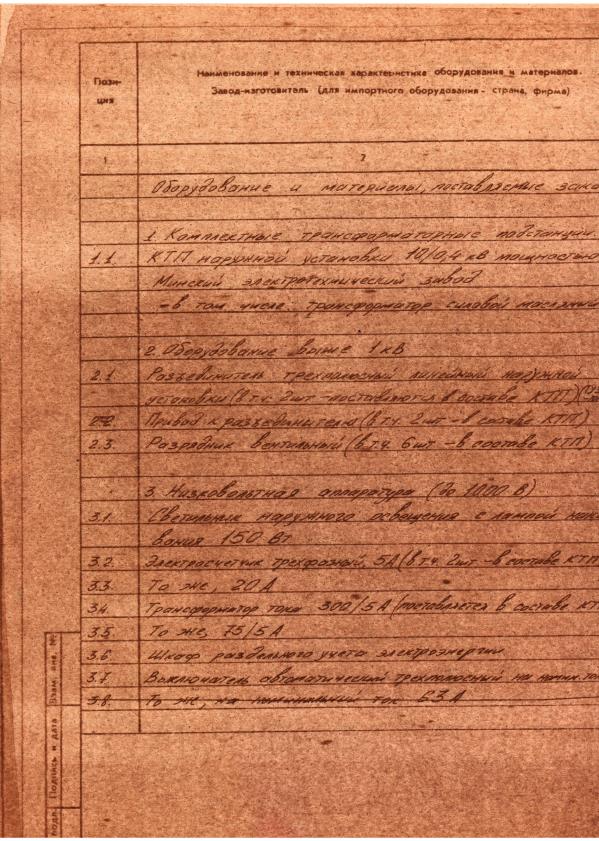 Пози-
ция
Наименование и техническая характеристика оборудования и материалов.
Завод-изготовитель (для импортного оборудования - страна, фирма)
1
2
Оборудование и материалы, поставляемые зака
1. Комплектные трансформаторные подстанции.
1.1 КТП наружной установки 10/0,4 кВ мощностью
Минский электротехнический завод
- в том числе: трансформатор силовой масляный
2. Оборудование выше 1 кВ
2.1 Разъединитель трехполюсный линейный наружной
установки (в т.ч. 2шт - поставляются в составе КТП)
Привод к разъединителю (в т.ч. 2шт - в составе КТП)
2.3 Разрядник вентильный (в т.ч. 6шт - в составе КТП)
3. Низковольтная аппаратура (до 1000 В)
3.1. Светильник наружного освещения с лампой нака
вания 150 Вт
3.2. Электросчетчик трехфазный, 5А (в т.ч. 2шт - в составе КТП
3.3. То же, 20 А
3.4. Трансформатор тока 300/5 А (поставляется в составе КТ
3.5. То же, 75/5 А
3.6. Шкаф раздельного учета электроэнергии
3.7. Выключатель автоматический трехполюсный на номин. то
3.8. То же, на номинальный ток 63 А
Взам. инв. №
Подпись и дата
подл.